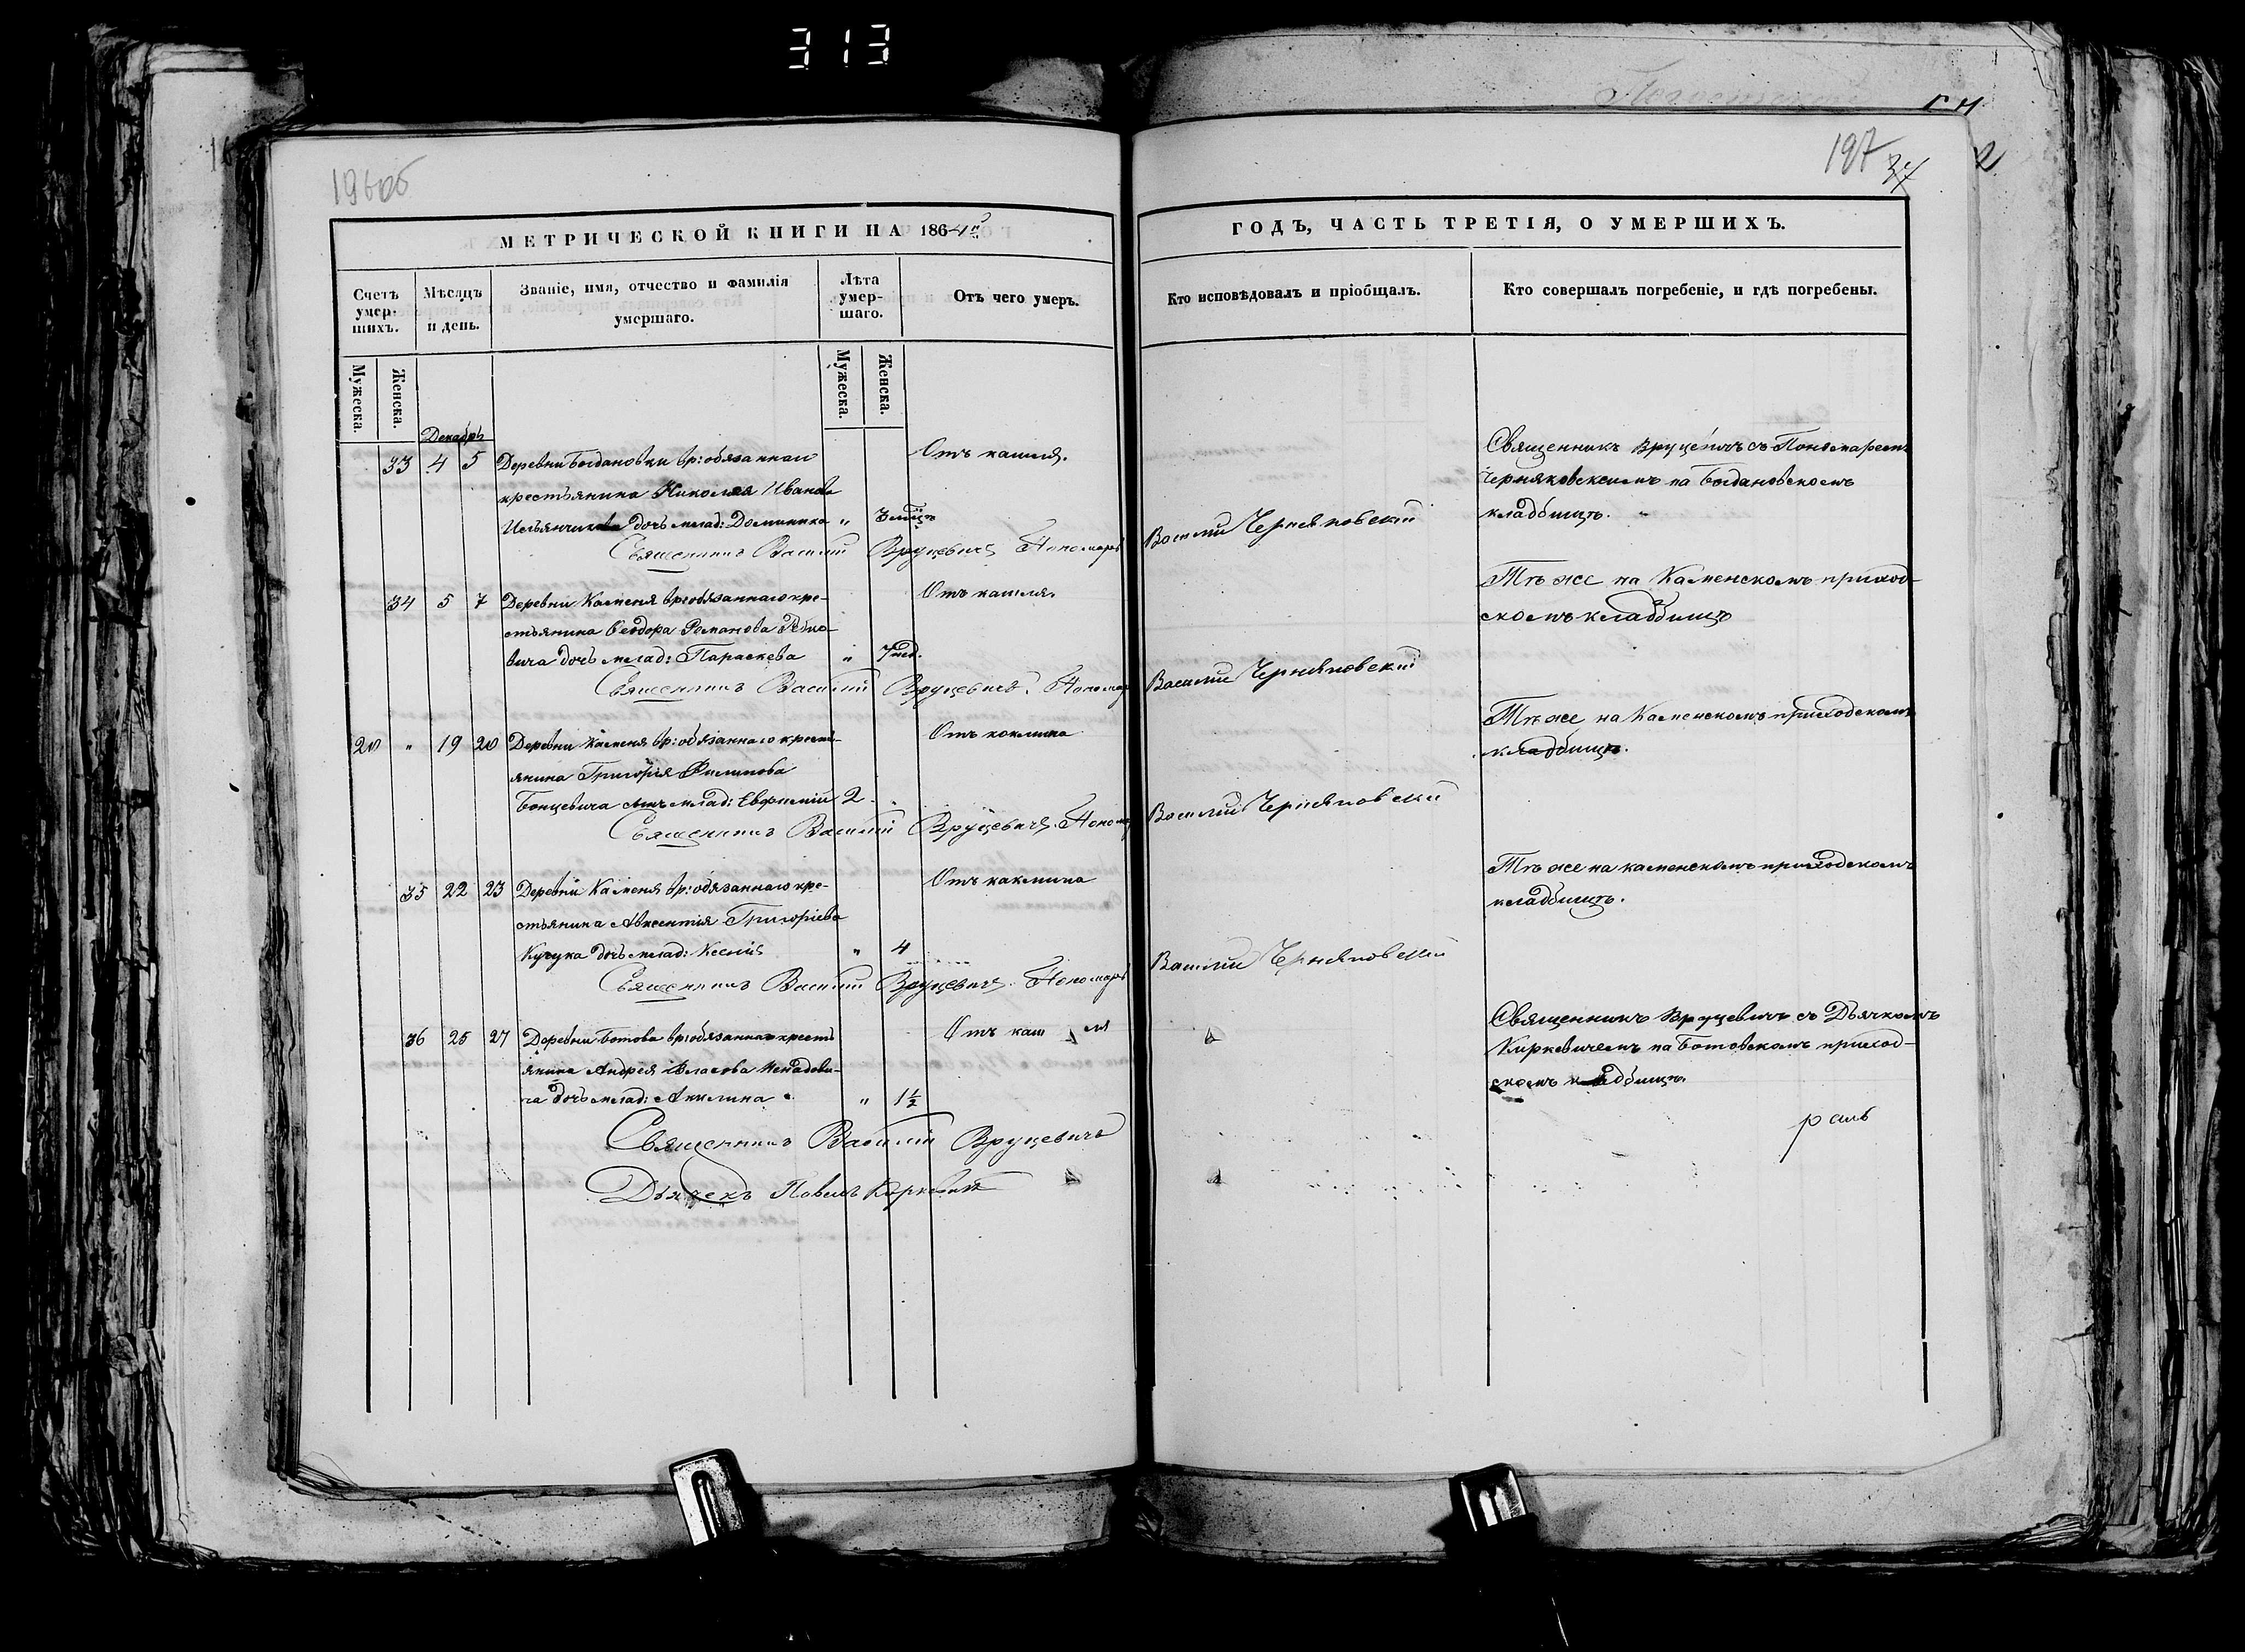 313
196об
197
37
2
МЕТРИЧЕСКОЙ КНИГИ НА 1864й
ГОДЪ, ЧАСТЬ ТРЕТІЯ, О УМЕРШИХЪ.
Счетъ умер-
шихъ.
Мѣсяцъ
и день.
Званіе, имя, отчество и фамилія
умершаго.
Лѣта
умер-
шаго.
Отъ чего умеръ.
Кто исповѣдовалъ и пріобщалъ.
Кто совершалъ погребеніе, и гдѣ погребены.
Мужеска.
Женска.
Мужеска.
Женска.
Декабрь
33 4 5 Деревни Богдановки вр: обязаннаго
Отъ кашля.
Священникъ Вруцевичъ съ Пономаремъ
крестьянина Николая Иванова
Черняковскимъ на Богдановскомъ
дочь млад: Доминика „
кладбищѣ.
Священникъ Василій Вруцевичъ Пономарь Василій Черняковскій
34 5 7 Деревни Каменя вр: обязаннаго кре-
Отъ кашля.
Тѣ же на Каменскомъ приход-
стьянина Ѳеодора Романова
скомъ кладбищѣ
вича дочь млад: Параскева „ 7 нед.
Священникъ Василій Вруцевичъ. Пономарь Василій Черняковскій
20 „ 19 20 Деревни Каменя вр: обязаннаго кресть-
Отъ коклюша
Тѣ же на Каменскомъ приходскомъ
янина Григорія Филипова
кладбищѣ.
Бонцевича сынъ млад: Евфимій 2
Священникъ Василій Вруцевичъ. Пономарь Василій Черняковскій
35 22 23 Деревни Каменя вр: обязаннаго кре-
Отъ каклюша
Тѣ же на каменскомъ приходскомъ
стьянина Авксентія Григоріева
кладбищѣ.
Кучука дочь млад: Ксенія „ 4
Священникъ Василій Вруцевичъ. Пономарь Василій Черняковскій
36 25 27 Деревни Ботова вр: обязаннаго кресть
Отъ кашля
Священникъ Вруцевичъ съ Дьячкомъ
янина Андрея Власова Ненадови-
Киркевичемъ на Ботовскомъ приход-
ча дочь млад: Акилина „ 1½
скомъ кладбищѣ.
Священникъ Василій Вруцевичъ
Дьячекъ Павелъ Киркевичъ